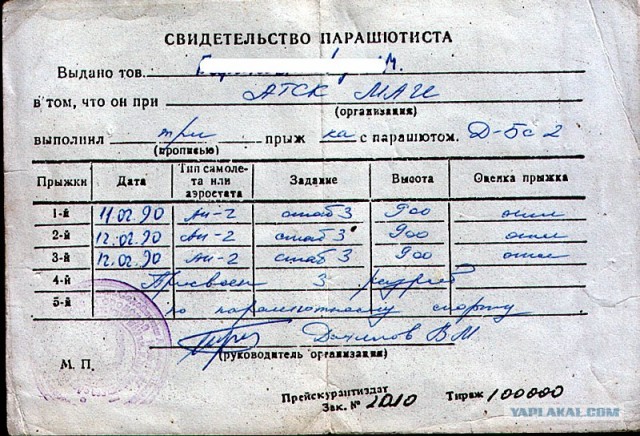 СВИДЕТЕЛЬСТВО ПАРАШЮТИСТА
Выдано тов. М.
в том, что он при АТСК МАИ
(организация)
выполнил три прыж ка с парашютом. Д-5с2
(прописью)
Прыжки Дата Тип самолета или аэростата Задание Высота Оценка прыжка
1-й 11.02.90 Ан-2 стаб 3 900 отл
2-й 12.02.90 Ан-2 стаб 3 900 отл
3-й 12.02.90 Ан-2 стаб 3 900 отл
4-й Присвоен 3 разряд
5-й по парашютному спорту
Данилов В М
(руководитель организации)
М. П.
Прейскурантиздат Тираж 100000
Зак. № 2010
YAPLAKAL.COM